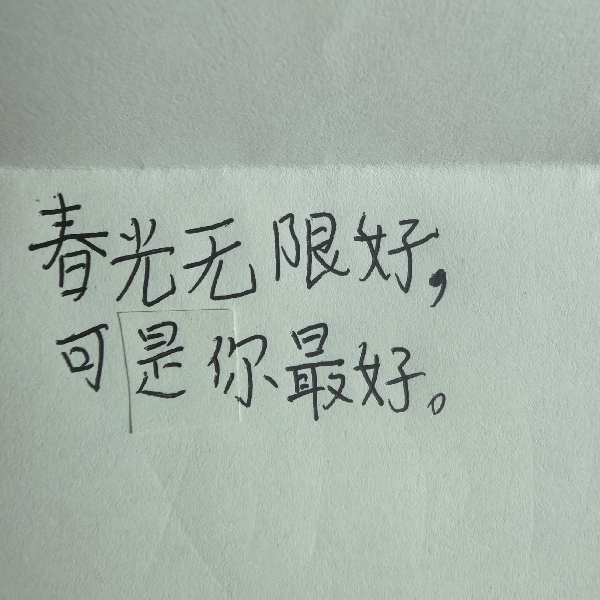 春光无限好，
可是你最好。